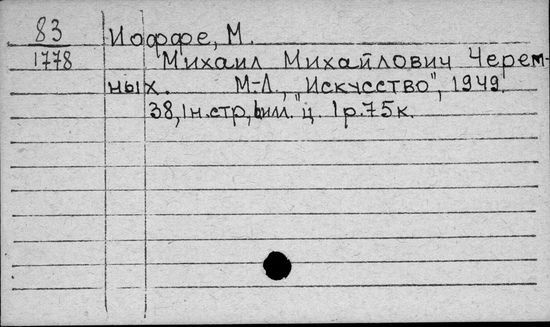 83 Иоффе, М.
1778 Михаил Михайлович Черем-
ных. М-Л., "Искусство", 1949.
38, 1н.стр, 6илл. ц. 1р.75к.